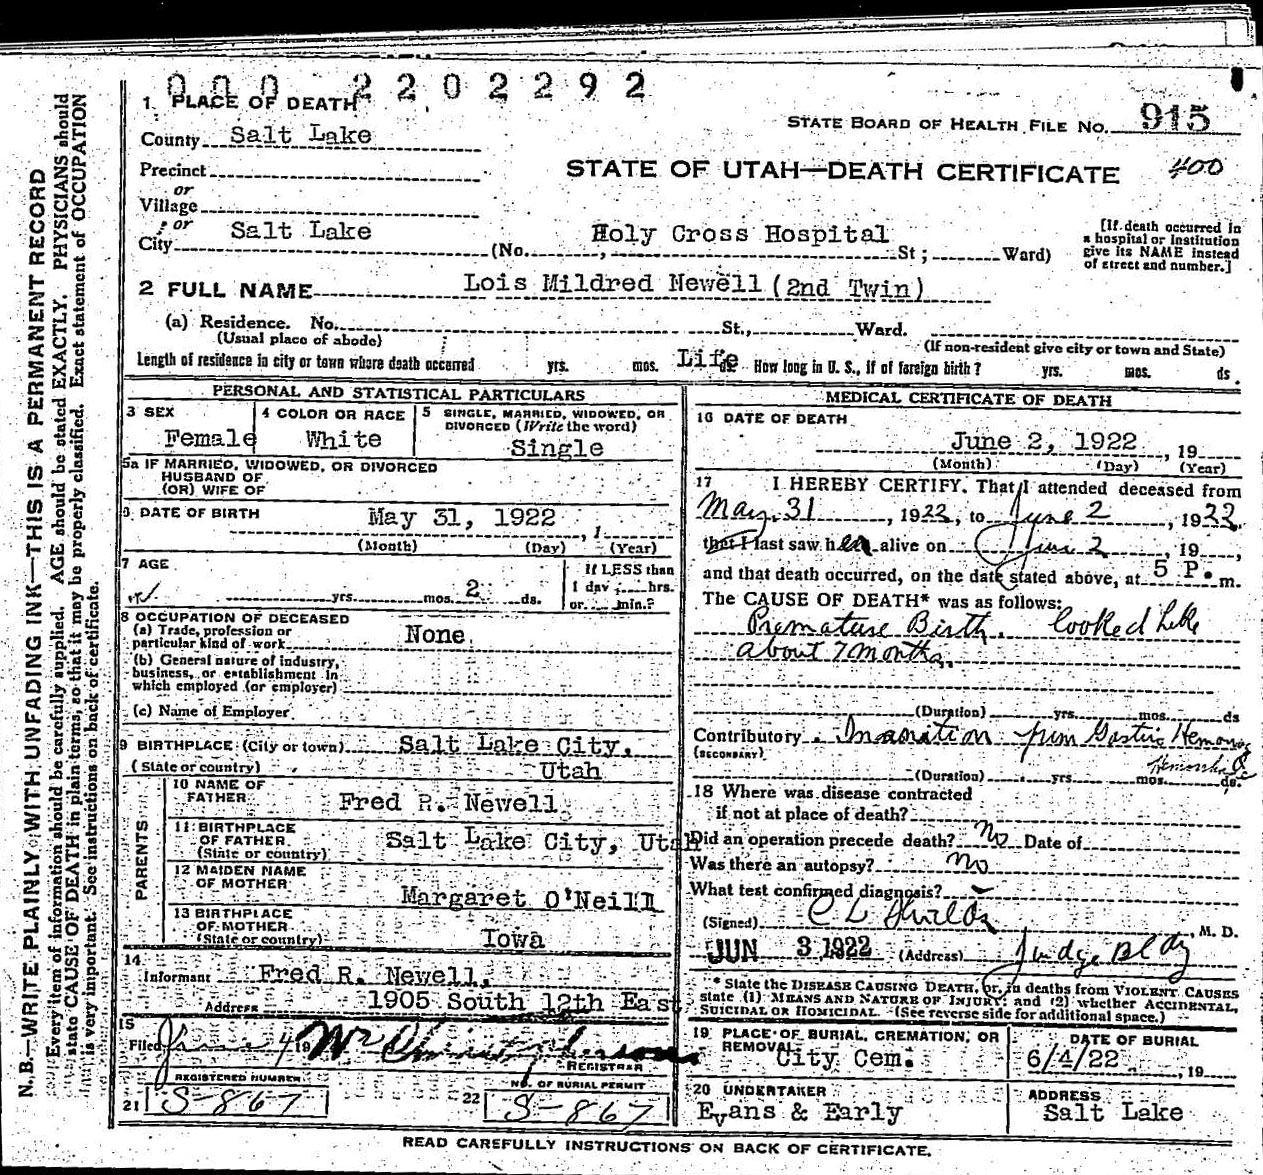 0 0 0 2 2 0 2 2 9 2
1. PLACE OF DEATH
County Salt Lake
STATE BOARD OF HEALTH FILE NO. 915
Precinct
STATE OF UTAH—DEATH CERTIFICATE 400
or
Village
or
City Salt Lake (No. , Holy Cross Hospital St; Ward)
[If death occurred in a hospital or institution give its NAME instead of street and number.]
2 FULL NAME Lois Mildred Newell (2nd Twin)
(a) Residence. No. St., Ward.
(Usual place of abode) (If non-resident give city or town and State)
Length of residence in city or town where death occurred yrs. mos. Life ds. How long in U. S., if of foreign birth? yrs. mos. ds.
PERSONAL AND STATISTICAL PARTICULARS
3 SEX Female
4 COLOR OR RACE White
5 SINGLE, MARRIED, WIDOWED, OR DIVORCED (Write the word) Single
5a IF MARRIED, WIDOWED, OR DIVORCED
HUSBAND OF
(OR) WIFE OF
6. DATE OF BIRTH May 31, 1922 , 1
(Month) (Day) (Year)
7 AGE yrs. mos. 2 ds.
If LESS than
1 day, hrs.
or min.?
8 OCCUPATION OF DECEASED
(a) Trade, profession or
particular kind of work None
(b) General nature of industry,
business, or establishment in
which employed (or employer)
(c) Name of Employer
9 BIRTHPLACE (City or town) Salt Lake City,
(State or country) Utah
PARENTS
10 NAME OF
FATHER Fred R. Newell
11 BIRTHPLACE
OF FATHER Salt Lake City, Utah
(State or country)
12 MAIDEN NAME
OF MOTHER Margaret O'Neill
13 BIRTHPLACE
OF MOTHER
(State or country) Iowa
14
Informant Fred R. Newell,
Address 1905 South 12th East
15
Filed June 4 19
REGISTRAR
REGISTERED NUMBER
21 S-867
NO. OF BURIAL PERMIT
22 S-867
MEDICAL CERTIFICATE OF DEATH
16 DATE OF DEATH
June 2, 1922 , 19
(Month) (Day) (Year)
17 I HEREBY CERTIFY, That I attended deceased from
May 31, 1922, to June 2, 1922
that I last saw her alive on June 2, 19 ,
and that death occurred, on the date stated above, at 5 P. m.
The CAUSE OF DEATH* was as follows:
Premature Birth. looked like
about 7 months.
(Duration) yrs. mos. ds
Contributory Inanition from Gastric
(SECONDARY) Hemorrhage
(Duration) yrs. mos. ds.
18 Where was disease contracted
if not at place of death?
Did an operation precede death? No Date of
Was there an autopsy? no
What test confirmed diagnosis?
(Signed) C L Shields, M. D.
JUN 3 1922 (Address) Judge Bldg
* State the DISEASE CAUSING DEATH, or, in deaths from VIOLENT CAUSES
state (1) MEANS AND NATURE OF INJURY; and (2) whether ACCIDENTAL,
SUICIDAL OR HOMICIDAL. (See reverse side for additional space.)
19 PLACE OF BURIAL, CREMATION, OR
REMOVAL City Cem.
DATE OF BURIAL
6/4/22 , 19
20 UNDERTAKER
Evans & Early
ADDRESS
Salt Lake
READ CAREFULLY INSTRUCTIONS ON BACK OF CERTIFICATE.
N. B.—WRITE PLAINLY WITH UNFADING INK—THIS IS A PERMANENT RECORD
Every item of information should be carefully supplied. AGE should be stated EXACTLY. PHYSICIANS should
state CAUSE OF DEATH in plain terms, so that it may be properly classified. Exact statement of OCCUPATION
is very important. See instructions on back of certificate.